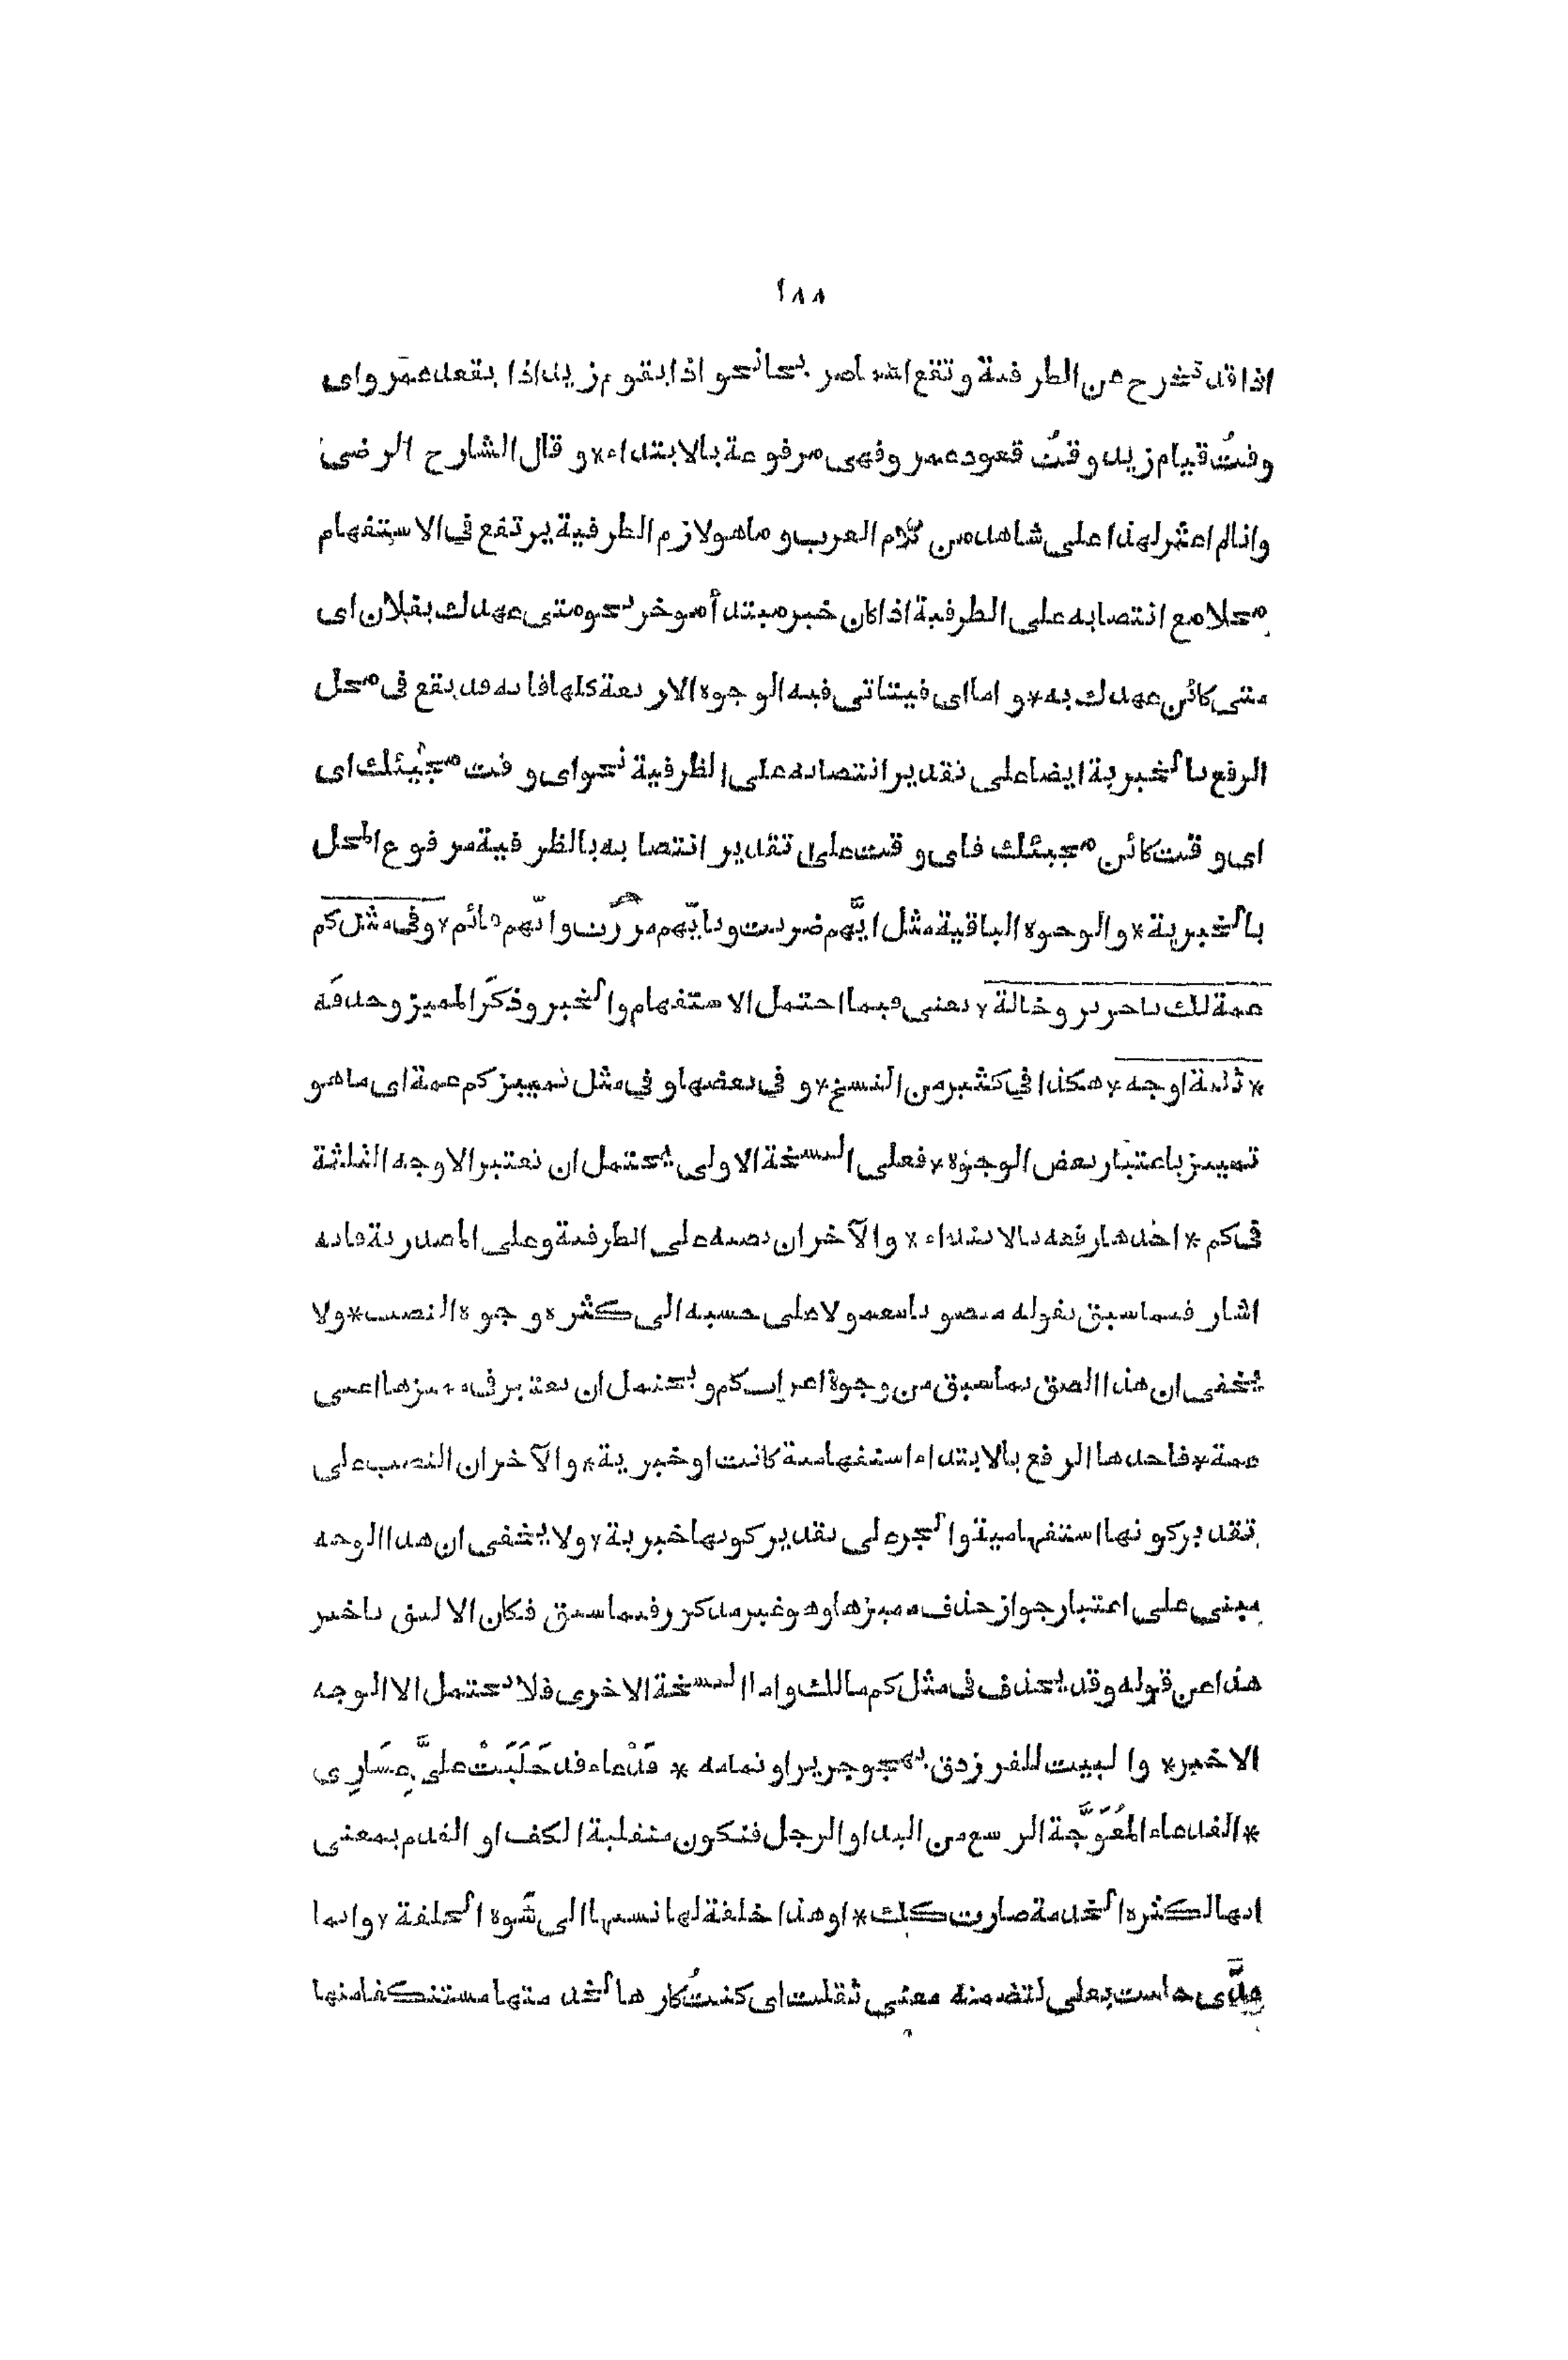 ١٨٨
اذا قد تخرج عن الظرفية وتقع اسما صريحا نحو اذا يقوم زيد اذا يقعد عمرو اى
وقتُ قيام زيد وقتُ قعود عمرو فهى مرفوعة بالابتداء * وقال الشارح الرضى
وانا لم اعثر لهذا على شاهد من كلام العرب وما هو لازم الظرفية يرتفع فى الاستفهام
محلا مع انتصابه على الظرفية اذا كان خبر مبتدأ موخر نحو متى عهدك بفلان اى
متى كائن عهدك به * و اما اى فيتاتى فيه الوجوه الاربعة كلها فانه قد يقع فى محل
الرفع بالخبرية ايضا على تقدير انتصابه على الظرفية نحو اى وقت مجيئك اى
اى وقت كائن مجيئك فاى وقت على تقدير انتصابه بالظرفية مرفوع المحل
بالخبرية * والوجوه الباقية مثل ايَّهم ضربت وبايّهم مررت وايّهم قائم * وفى مثل كم
عمة لك يا جرير وخالة * يعنى فيما احتمل الاستفهام والخبر وذكر المميز وحذفه
* ثلثة اوجه * هكذا فى كثير من النسخ * و فى بعضها و فى مثل تمييز كم عمة اى ما هو
تمييز باعتبار بعض الوجوه * فعلى النسخة الاولى يحتمل ان نعتبر الاوجه الثلثة
فى كم * احدها رفعه بالابتداء * والآخران نصبه على الظرفية وعلى المصدرية فانه
اشار فيما سبق بقوله منصوبا معمولا على حسبه الى كثرة وجوه النصب * ولا
يخفى ان هذا الصق بما سبق من وجوه اعراب كم و يحتمل ان يعتبر فى مميزها اعنى
عمة * فاحدها الرفع بالابتداء استفهامية كانت او خبرية * والآخران النصب على
تقدير كونها استفهامية والجر على تقدير كونها خبرية * ولا يخفى ان هذا الوجه
مبنى على اعتبار جواز حذف مميزها وهو غير مذكور فيما سبق فكان الاليق تاخير
هذا عن قوله وقد يحذف فى مثل كم مالك واما النسخة الاخرى فلا تحتمل الا الوجه
الاخير * والبيت للفرزدق يهجو جريرا و تمامه * فَدْعاء قد حَلَبَتْ علىَّ عِشَارِى
* الفدعاء المُعَوَّجة الرسغ من اليد او الرجل فتكون منقلبة الكف او القدم بمعنى
انها لكثرة الخدمة صارت كذلك * او هذا خلقة لها نسبها الى شوه الخلقة * وانما
عدَّى حلبت بعلى لتضمنه معنى ثقلت اى كنتُ كارها لخدمتها مستنكفا منها